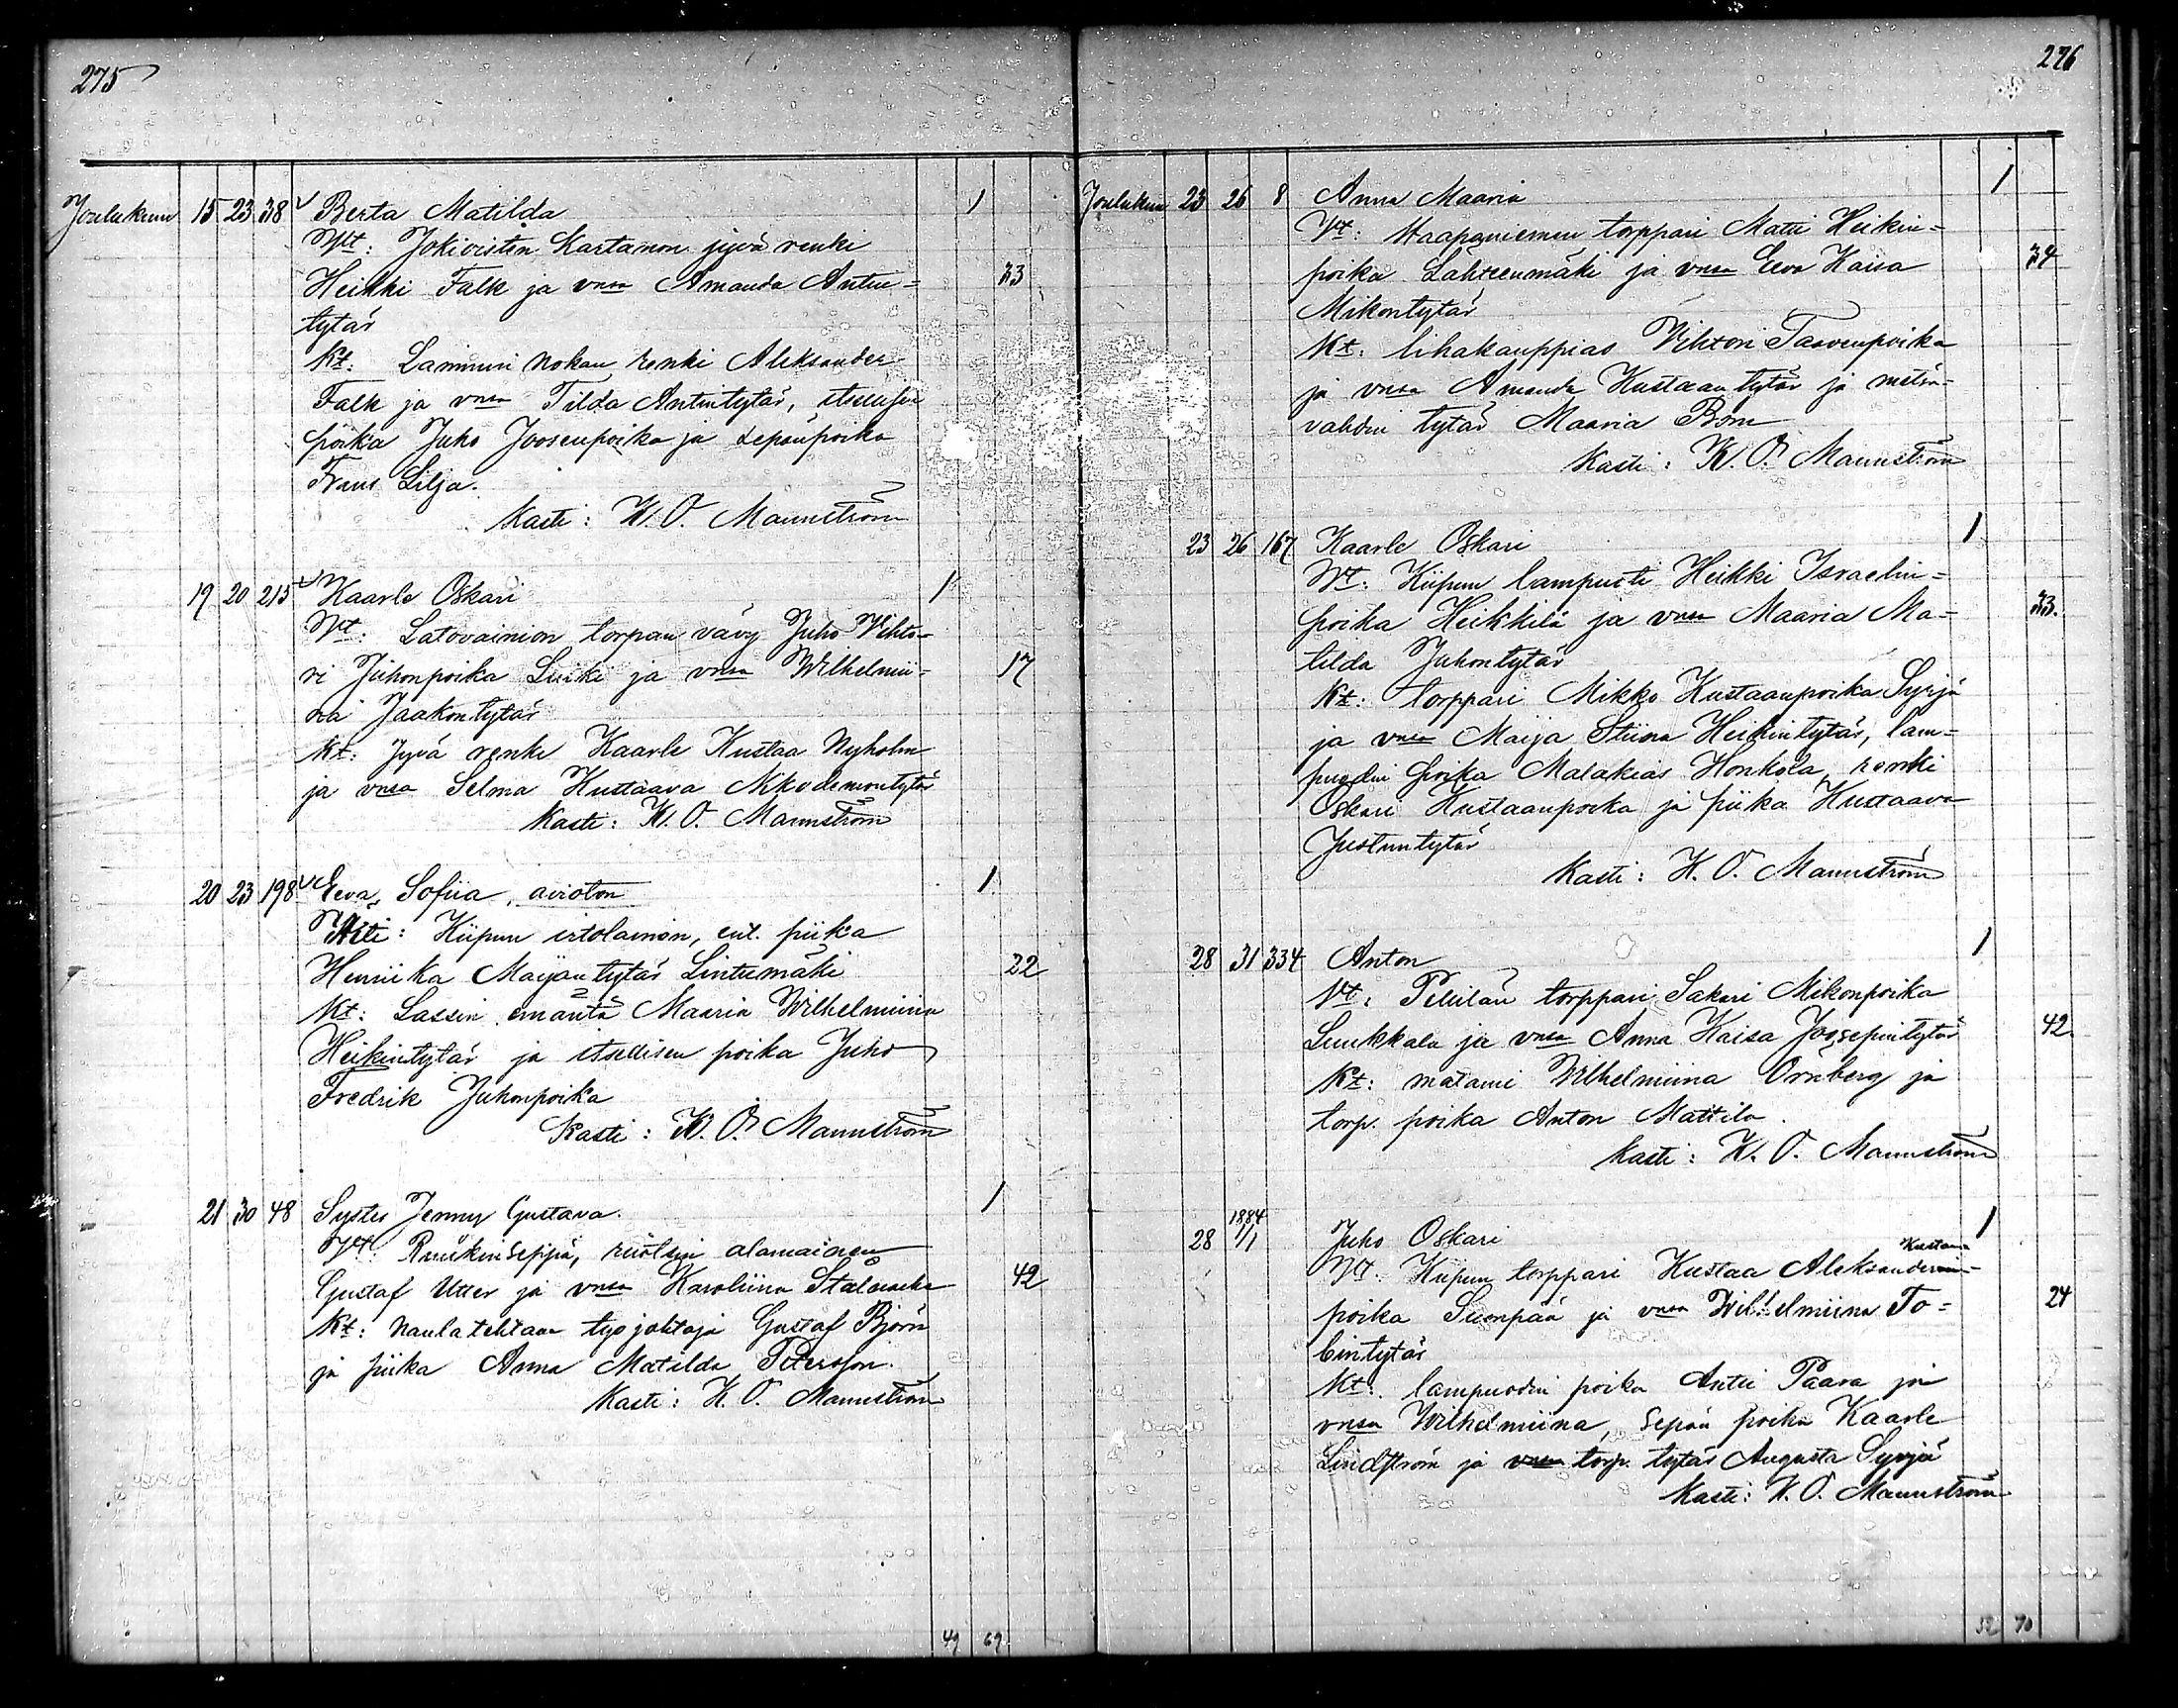 275
Joulukuun 15 23 38 Berta Matilda 1
Vt: Jokioisten Kartanon jyvä renki
Heikki Falk ja vmsa Amanda Antin= 33
tytär
Kt: Lammin Nokan renki Aleksander
Falk ja vmsa Tilda Antintytär, itsellisen
poika Juho Joosenpoika ja sepänpoika
Frans Lilja.
Kasti: K. O. Mannström
19 20 215 Kaarle Oskari 1
Vt: Latovainion torpan vävy Juho Vihto-
ri Juhonpoika Luiki ja vmsa Wilhelmii= 17
na Jaakontytär
Kt: Jyvä renki Kaarle Kustaa Nyholm
ja vmsa Selma Kustaava Nikodemontytär
Kasti: K. O. Mannström
20 23 198 Eeva Sofiia, avioton 1
Äiti: Kiipun irtolainen, ent. piika
Henriika Maijantytär Lintumäki 22
Kt: Lassin emäntä Maaria Wilhelmiina
Heikintytär ja itsellisen poika Juho
Fredrik Juhonpoika
Kasti: K. O. Mannström
21 30 48 Syster Jenny Gustava. 1
Vt: Ruukinseppä, ruotsin alamainen
Gustaf Utter ja vmsa Karoliina Stålnacke 42
Kt: Naulatehtaan työjohtaja Gustaf Björn
ja piika Anna Matilda Petersson.
Kasti: K. O. Mannström
49 69
276
Joulukuun 23 26 8 Anna Maaria 1
Vt: Haapaniemen torppari Matti Heikin=
poika Lähteenmäki ja vmsa Eeva Kaisa 34
Mikontytär
Kt: lihakauppias Vihtori Taavenpoika
ja vmsa Amanda Kustaantytär ja metsä-
vahdin tytär Maaria Bom
Kasti: K. O. Mannström
23 26 167 Kaarle Oskari 1
Vt: Kiipun lampuoti Heikki Israelin=
poika Heikkilä ja vmsa Maaria Ma= 33.
tilda Juhontytär
Kt: torppari Mikko Kustaanpoika Syrjä
ja vmsa Maija Stiina Heikintytär, lam=
puodin poika Malakias Honkola, renki
Oskari Kustaanpoika ja piika Kustaava
Justuntytär
Kasti: K. O. Mannström
28 31 334 Anton 1
Vt: Pellilän torppari Sakari Mikonpoika
Luukkala ja vmsa Anna Kaisa Joosepintytär 42
Kt: matami Wilhelmiina Örnberg ja
torp. poika Anton Mattila.
Kasti: K. O. Mannström
1884
28 1/1 Juho Oskari 1
Kustaan
Vt: Kiipun torppari Kustaa Aleksanderin-
poika Suonpää ja vmsa Wilhelmiina To= 24
bintytär
Kt: lampuodin poika Antti Paava ja
vmsa Wilhelmiina, sepän poika Kaarle
Lindström ja vmsa torp. tytär Augusta Syrjä
Kasti: K. O. Mannström
52 70